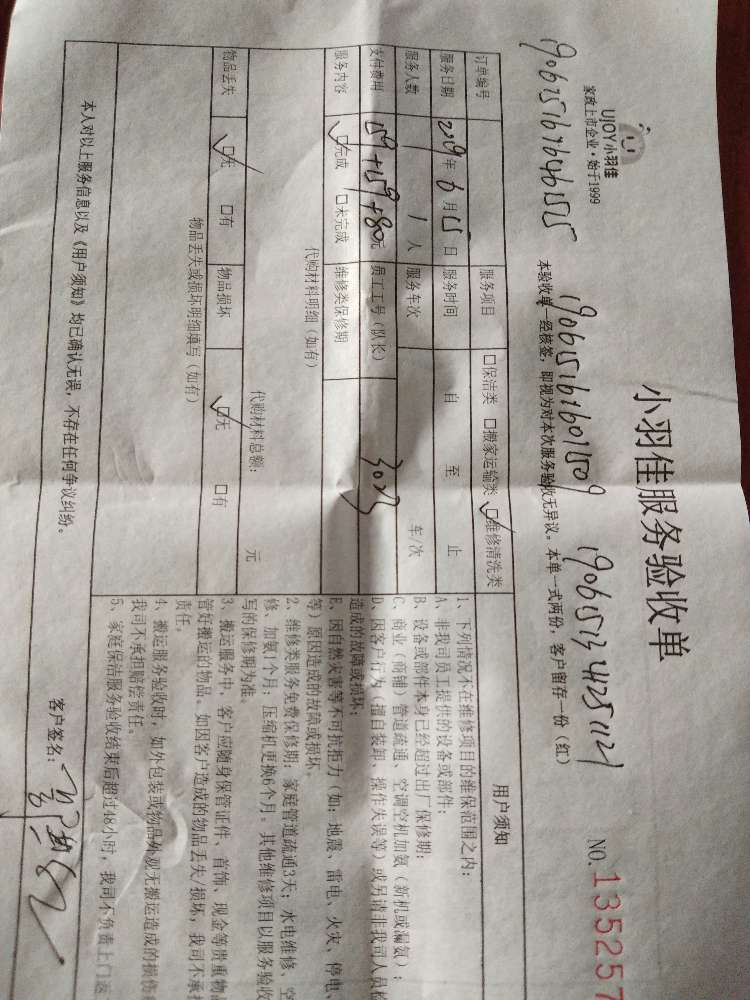 UJOY小羽佳
家政上市企业·始于1999
小羽佳服务验收单
NO.135257
本验收单一经核签，即视为对本次服务验收无异议。本单一式两份，客户留存一份（红）
订单编号 服务项目 □保洁类 □搬家运输类 □维修清洗类
服务日期 2019年6月15日 服务时间 自 至 止
服务人数 1人 服务车次 车/次
支付费用 159+159+80元 员工工号（队长） 3023
服务内容 □完成 □未完成 维修类保修期
代购材料明细（如有）
代购材料总额： 元
物品丢失 □无 □有 物品损坏 □无 □有
物品丢失或损坏明细填写（如有）
本人对以上服务信息以及《用户须知》均已确认无误，不存在任何争议纠纷。
用户须知
1、下列情况不在维修项目的维保范围之内：
A、非我司员工提供的设备或部件；
B、设备或部件本身已经超过出厂保修期；
C、商业（商铺）管道疏通、空调空机加氨（新机或漏氨）；
D、因客户行为（擅自装卸、操作失误等）或另请非我司人员检
造成的故障或损坏；
E、因自然灾害等不可抗拒力（如：地震、雷电、火灾、停电、
等）原因造成的故障或损坏。
2、维修类服务免费保修期：家庭管道疏通3天；水电维修、空
修、加氨1个月；压缩机更换6个月。其他维修项目以服务验收
写的保修期为准。
3、搬运服务中，客户应随身保管证件、首饰、现金等贵重物品
管好搬运的物品。如因客户造成的物品丢失/损坏，我司不承担
责任。
4、搬运服务验收时，如外包装或物品外观无搬运造成的损伤
我司不承担赔偿责任。
5、家庭保洁服务验收结束后超过48小时，我司不负责上门返
客户签名：